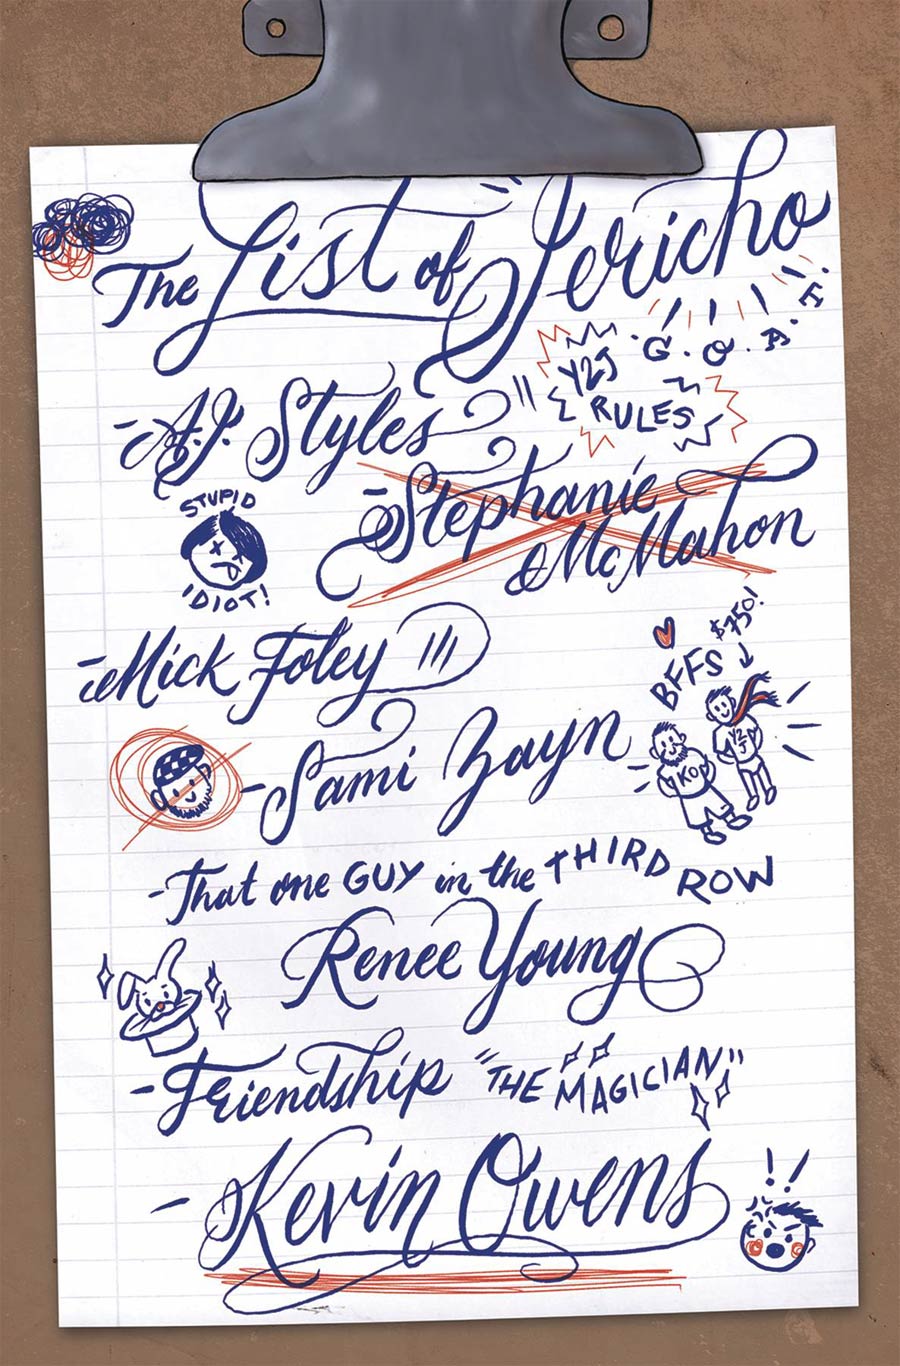 The List of Jericho
·G.O.A.T.
Y2J
RULES
- A.J. Styles
- Stephanie
McMahon
STUPID
IDIOT!
- Mick Foley
$750!
BFFS
Y2J
KO
- Sami Zayn
- That one GUY in the THIRD ROW
Renee Young
- Friendship "THE MAGICIAN"
- Kevin Owens
!!